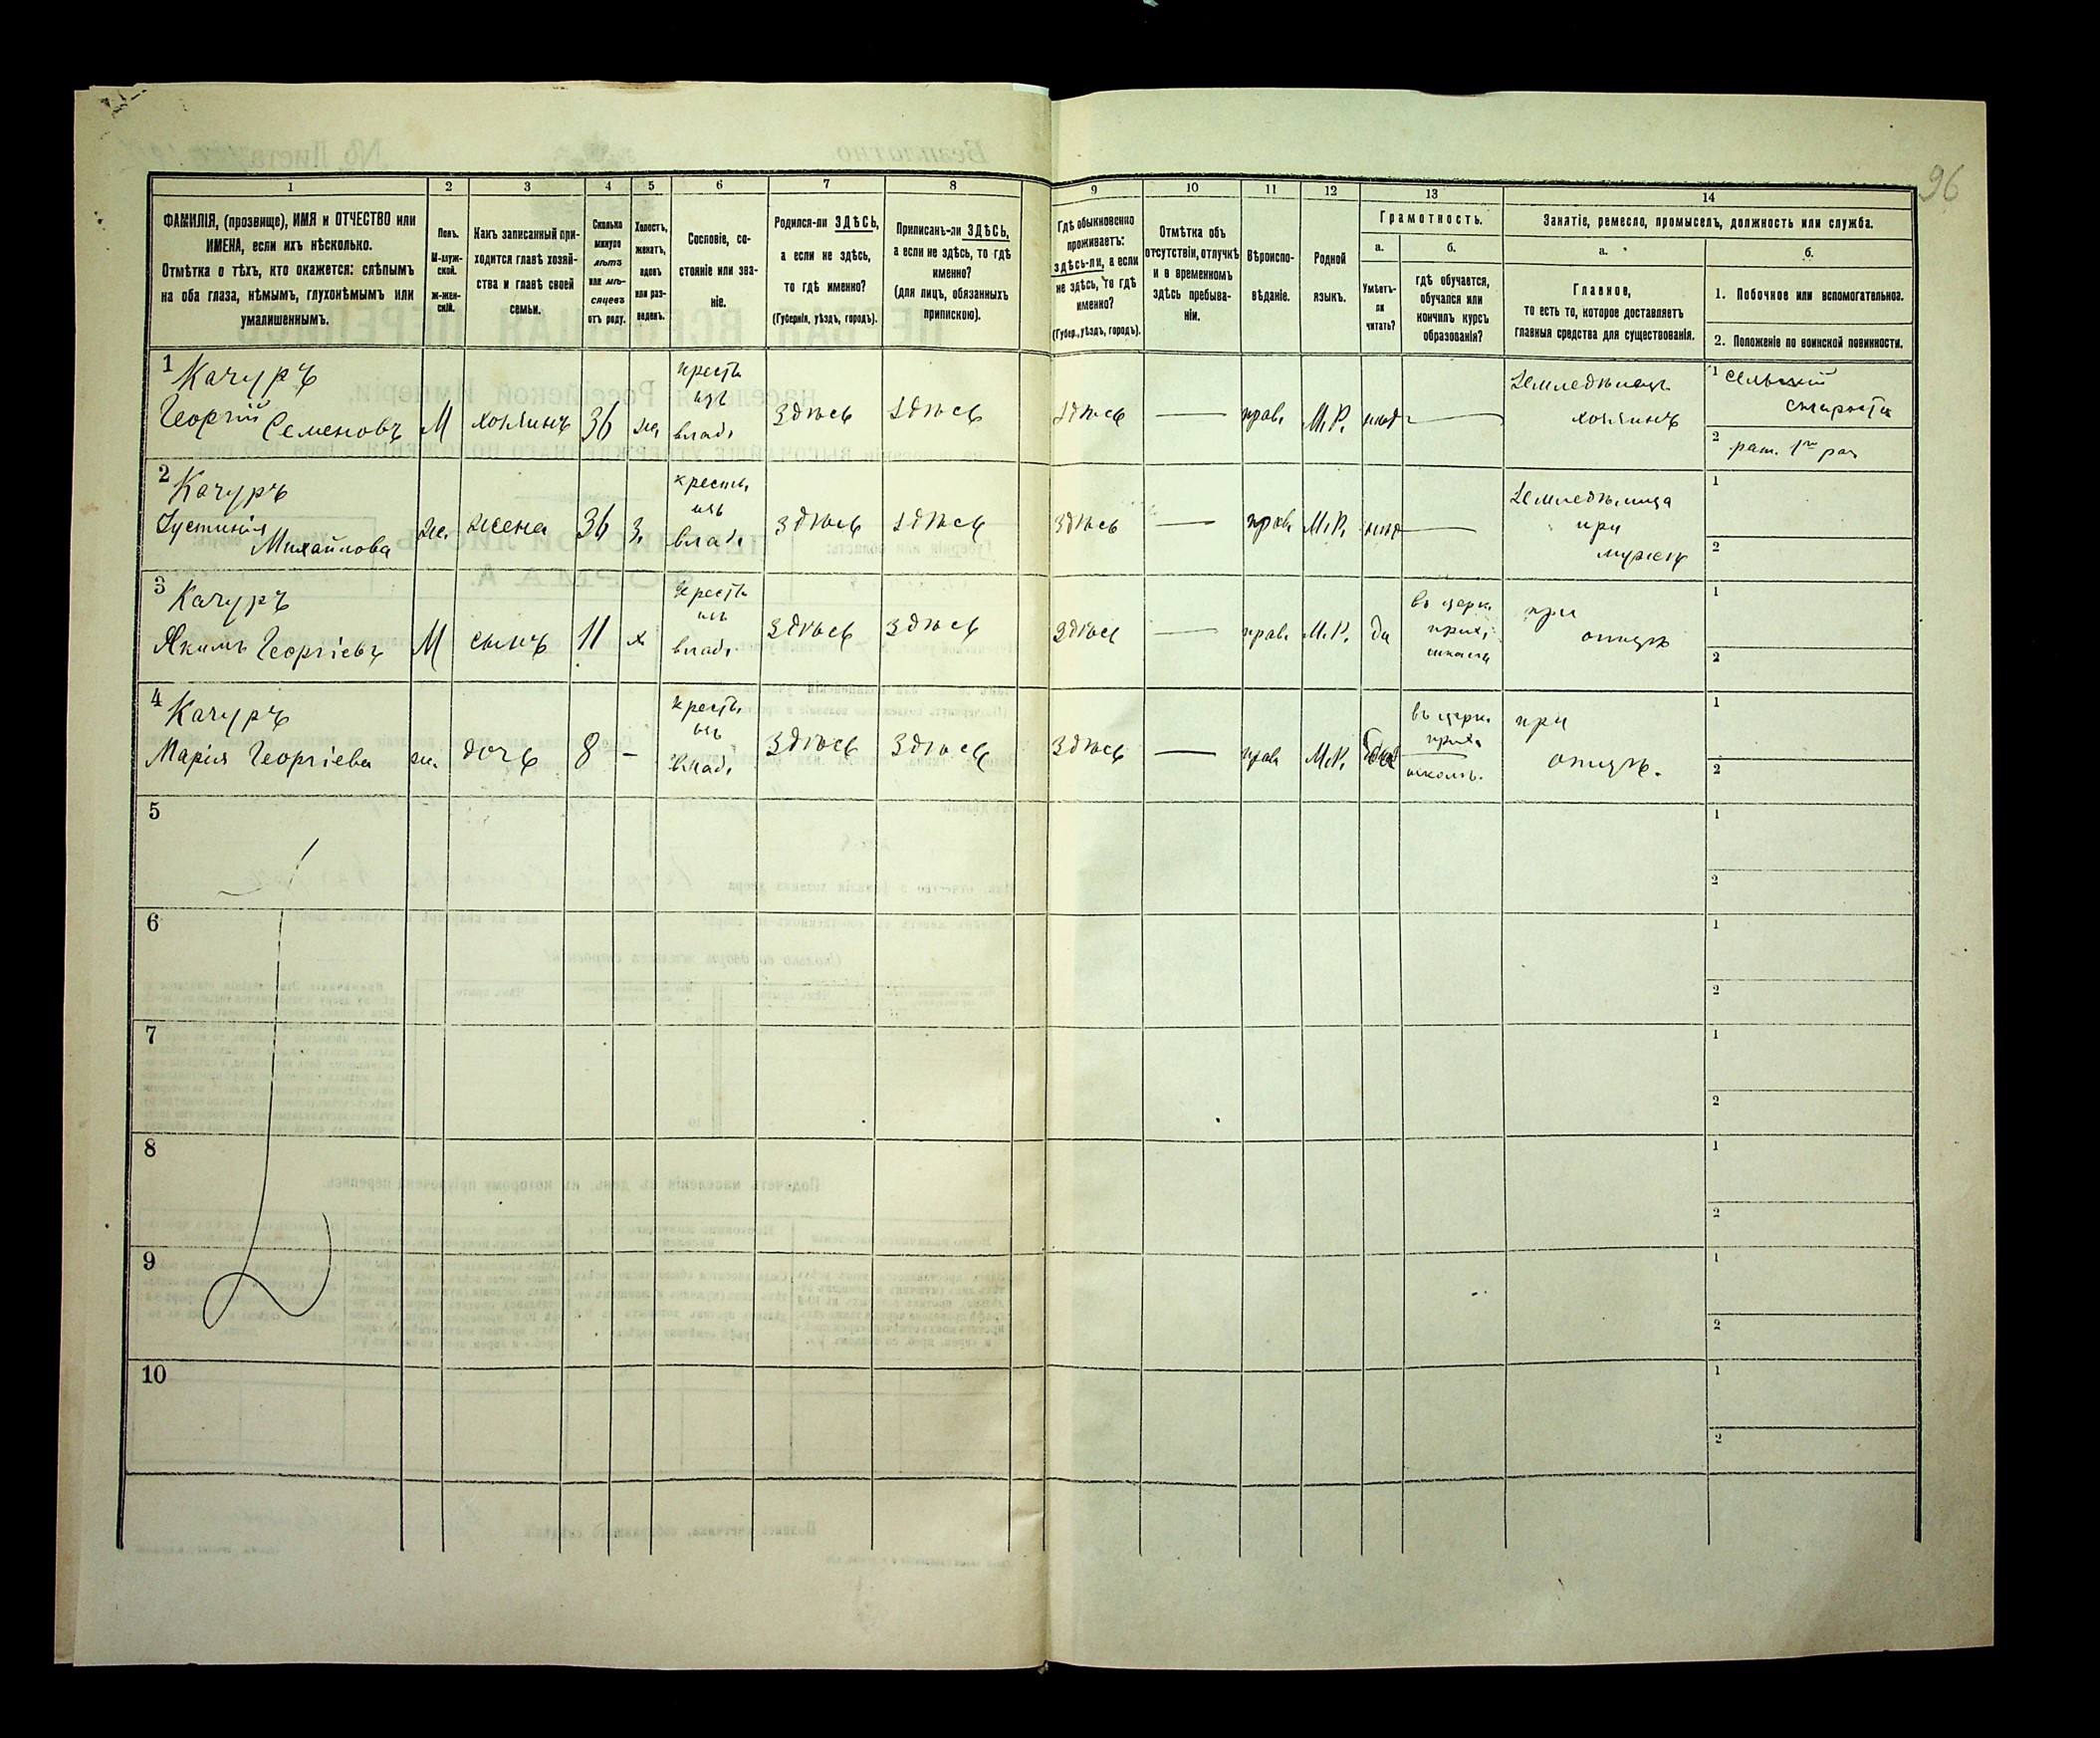 96
1 2 3 4 5 6 7 8 9 10 11 12 13 14
ФАМИЛІЯ, (прозвище), ИМЯ и ОТЧЕСТВО или
ИМЕНА, если ихъ нѣсколько.
Отмѣтка о тѣхъ, кто окажется: слѣпымъ
на оба глаза, нѣмымъ, глухонѣмымъ или
умалишеннымъ.
Полъ.
М-муж-
ской.
Ж-жен-
скій.
Какъ записанный при-
ходится главѣ хозяй-
ства и главѣ своей
семьи.
Сколько
минуло
лѣтъ
или мѣ-
сяцевъ
отъ роду.
Холостъ,
женатъ,
вдовъ
или раз-
веденъ.
Сословіе, со-
стояніе или зва-
ніе.
Родился-ли ЗДѢСЬ,
а если не здѣсь,
то гдѣ именно?
(Губернія, уѣздъ, городъ).
Приписанъ-ли ЗДѢСЬ,
а если не здѣсь, то гдѣ
именно?
(для лицъ, обязанныхъ
припискою).
Гдѣ обыкновенно
проживаетъ:
здѣсь-ли, а если
не здѣсь, то гдѣ
именно?
(Губер., уѣздъ, городъ).
Отмѣтка объ
отсутствіи, отлучкѣ
и о временномъ
здѣсь пребыва-
ніи.
Вѣроиспо-
вѣданіе.
Родной
языкъ.
Грамотность.
а.
Умѣетъ-
ли
читать?
б.
гдѣ обучается,
обучался или
кончилъ курсъ
образованія?
Занятіе, ремесло, промыселъ, должность или служба.
а.
Главное,
то есть то, которое доставляетъ
главныя средства для существованія.
б.
1. Побочное или вспомогательное.
2. Положеніе по воинской повинности.
1 Качуръ
Георгій Семеновъ
М
хозяинъ
36
же.
крестъ.
изъ
влад.
Здѣсь
Здѣсь
Здѣсь
—
прав.
М.Р.
нѣтъ
—
Земледѣлецъ
хозяинъ
1 Сельскій
староста
2 рат. 1го раз
2 Качуръ
Іустинія
Михайлова
же.
жена
36
з.
крестъ.
изъ
влад.
Здѣсь
Здѣсь
Здѣсь
—
прав.
М.Р.
нѣтъ
—
Земледѣлица
при
мужѣ
1
2
3 Качуръ
Якимъ Георгіевъ
М
сынъ
11
х
крестъ.
изъ
влад.
Здѣсь
Здѣсь
Здѣсь
—
прав.
М.Р.
да
въ церк.
прих.
школѣ
при
отцѣ
1
2
4 Качуръ
Марія Георгіева
же.
дочь
8
—
крестъ.
изъ
влад.
Здѣсь
Здѣсь
Здѣсь
—
прав.
М.Р.
въ церк.
прих.
школѣ.
при
отцѣ.
1
2
5
1
2
6
1
2
7
1
2
8
1
2
9
1
2
10
1
2